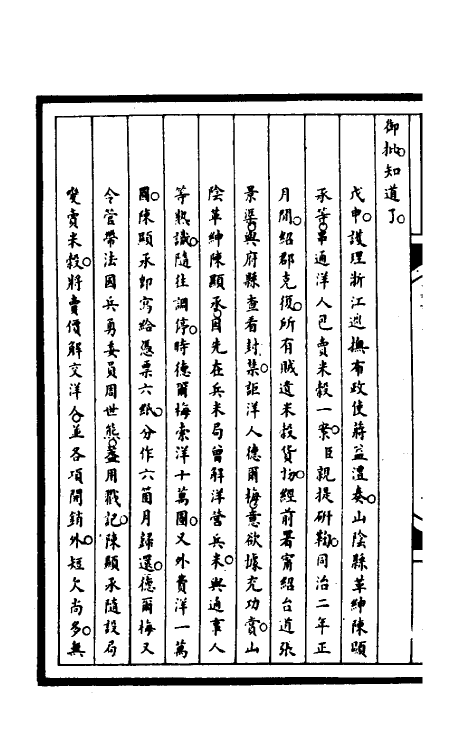 御批。知道了。
戊申。護理浙江巡撫布政使蔣益澧奏。山陰縣革紳陳顯
承等。串通洋人已賣米穀一案。臣親提研鞫。同治二年正
月間。紹郡克復。所有賊遺米穀貨物。經前署甯紹台道張
景渠。與府縣查看封禁。詎洋人德爾梅。意欲據充功賞。山
陰革紳陳顯承。因先在兵米局曾解洋營兵米。與通事人
等熟識。隨往調停。時德爾梅索洋十萬圓。又外費洋一萬
圓。陳顯承即寫給憑票六紙。分作六箇月歸還。德爾梅又
令管帶法國兵勇委員周世熊。蓋用戳記。陳顯承隨設局
變賣米穀。將賣價解交洋人。並各項開銷外。短欠尚多。無